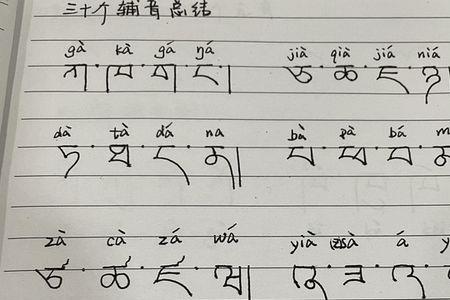 三十个辅音总结
gà kà gá ŋá jià qià jiá niá
ཀ་ཁ་ག་ང། ཅ་ཆ་ཇ་ཉ
dà tà dá na bà pà bá
ཏ་ཐ་ད་ན། པ་ཕ་བ་མ
zà cà zá wá yià á
ཙ་ཚ་ཛ་ཝ། ཞ་ཟ་འ་